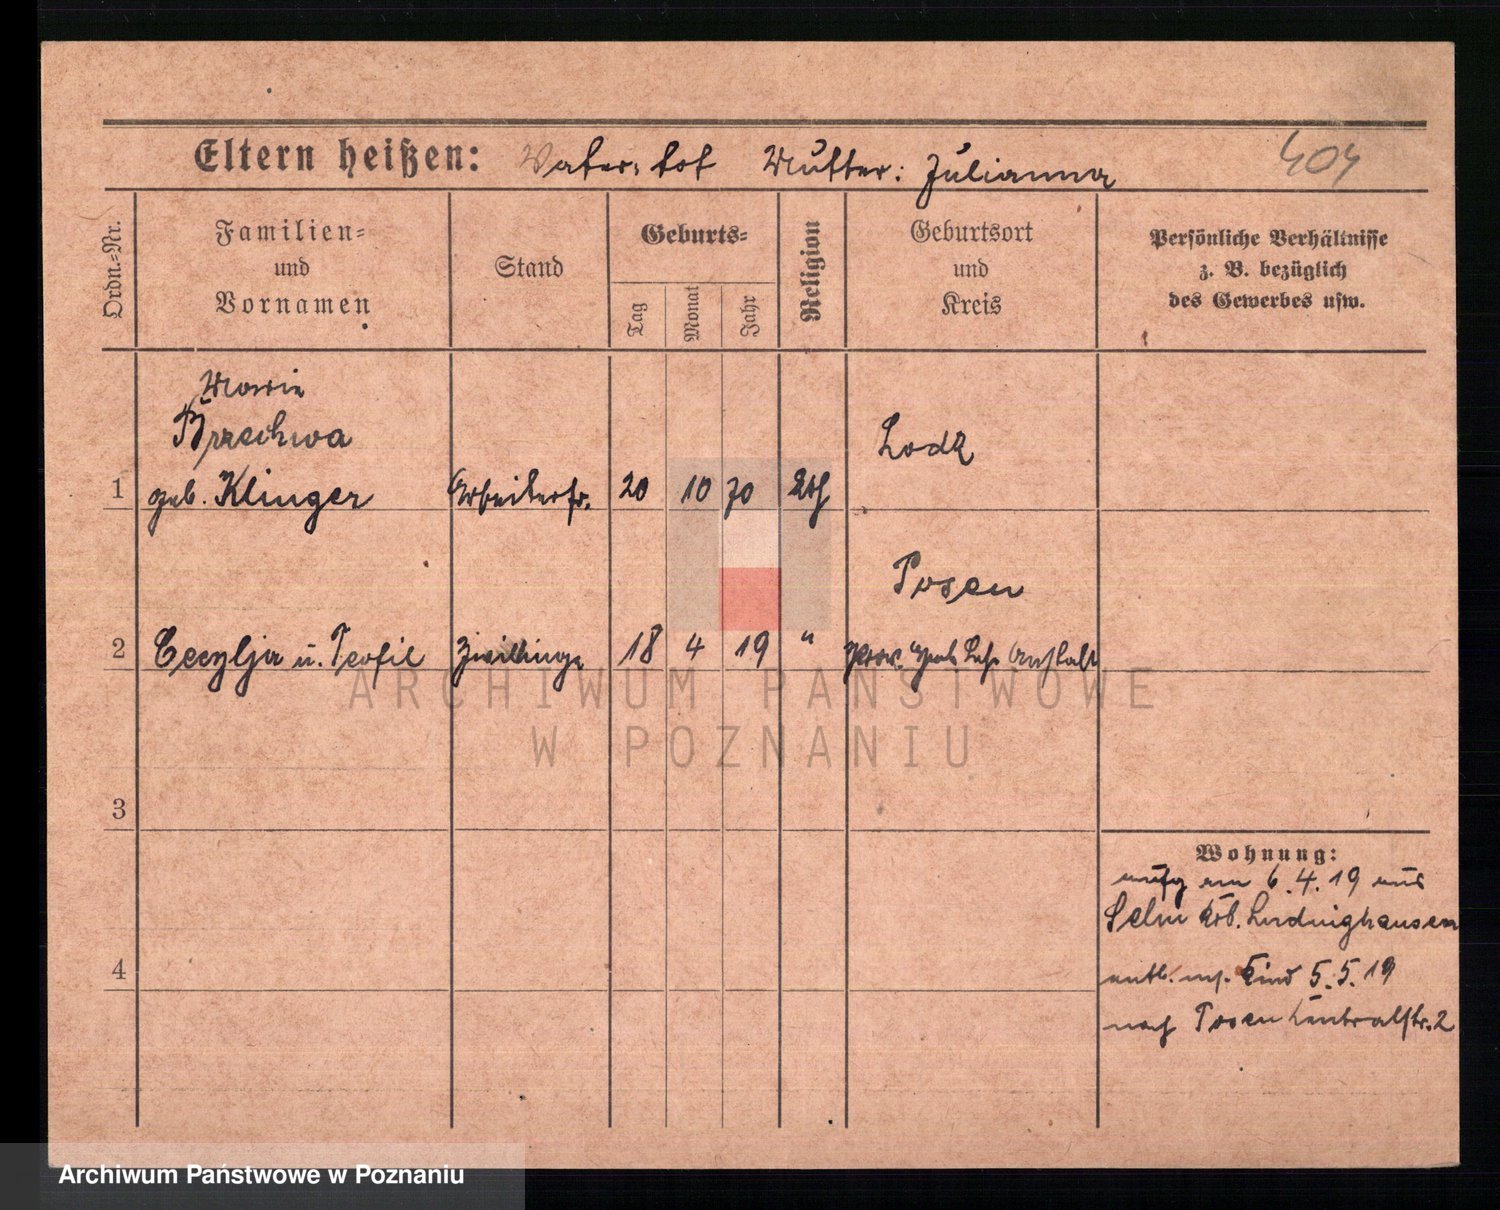 Eltern heißen: Vater: tot Mutter: Julianna 404
Ordn.-Nr.
Familien=
und
Vornamen
Stand
Geburts=
Tag
Monat
Jahr
Religion
Geburtsort
und
Kreis
Persönliche Verhältnisse
z. B. bezüglich
des Gewerbes usw.
Marie
Brzechwa
1 geb. Klinger Arbeiterfr. 20 10 Lodz
Posen
2 Cecylja u. Teofil Zwillinge 18 4 19 " Prov. Anstalt
3
Wohnung:
am 6.4.19 aus
Selm Lüdinghausen
4
Kind 5.5.19
nach Posen 2
ARCHIWUM PAŃSTWOWE
W POZNANIU
Archiwum Państwowe w Poznaniu